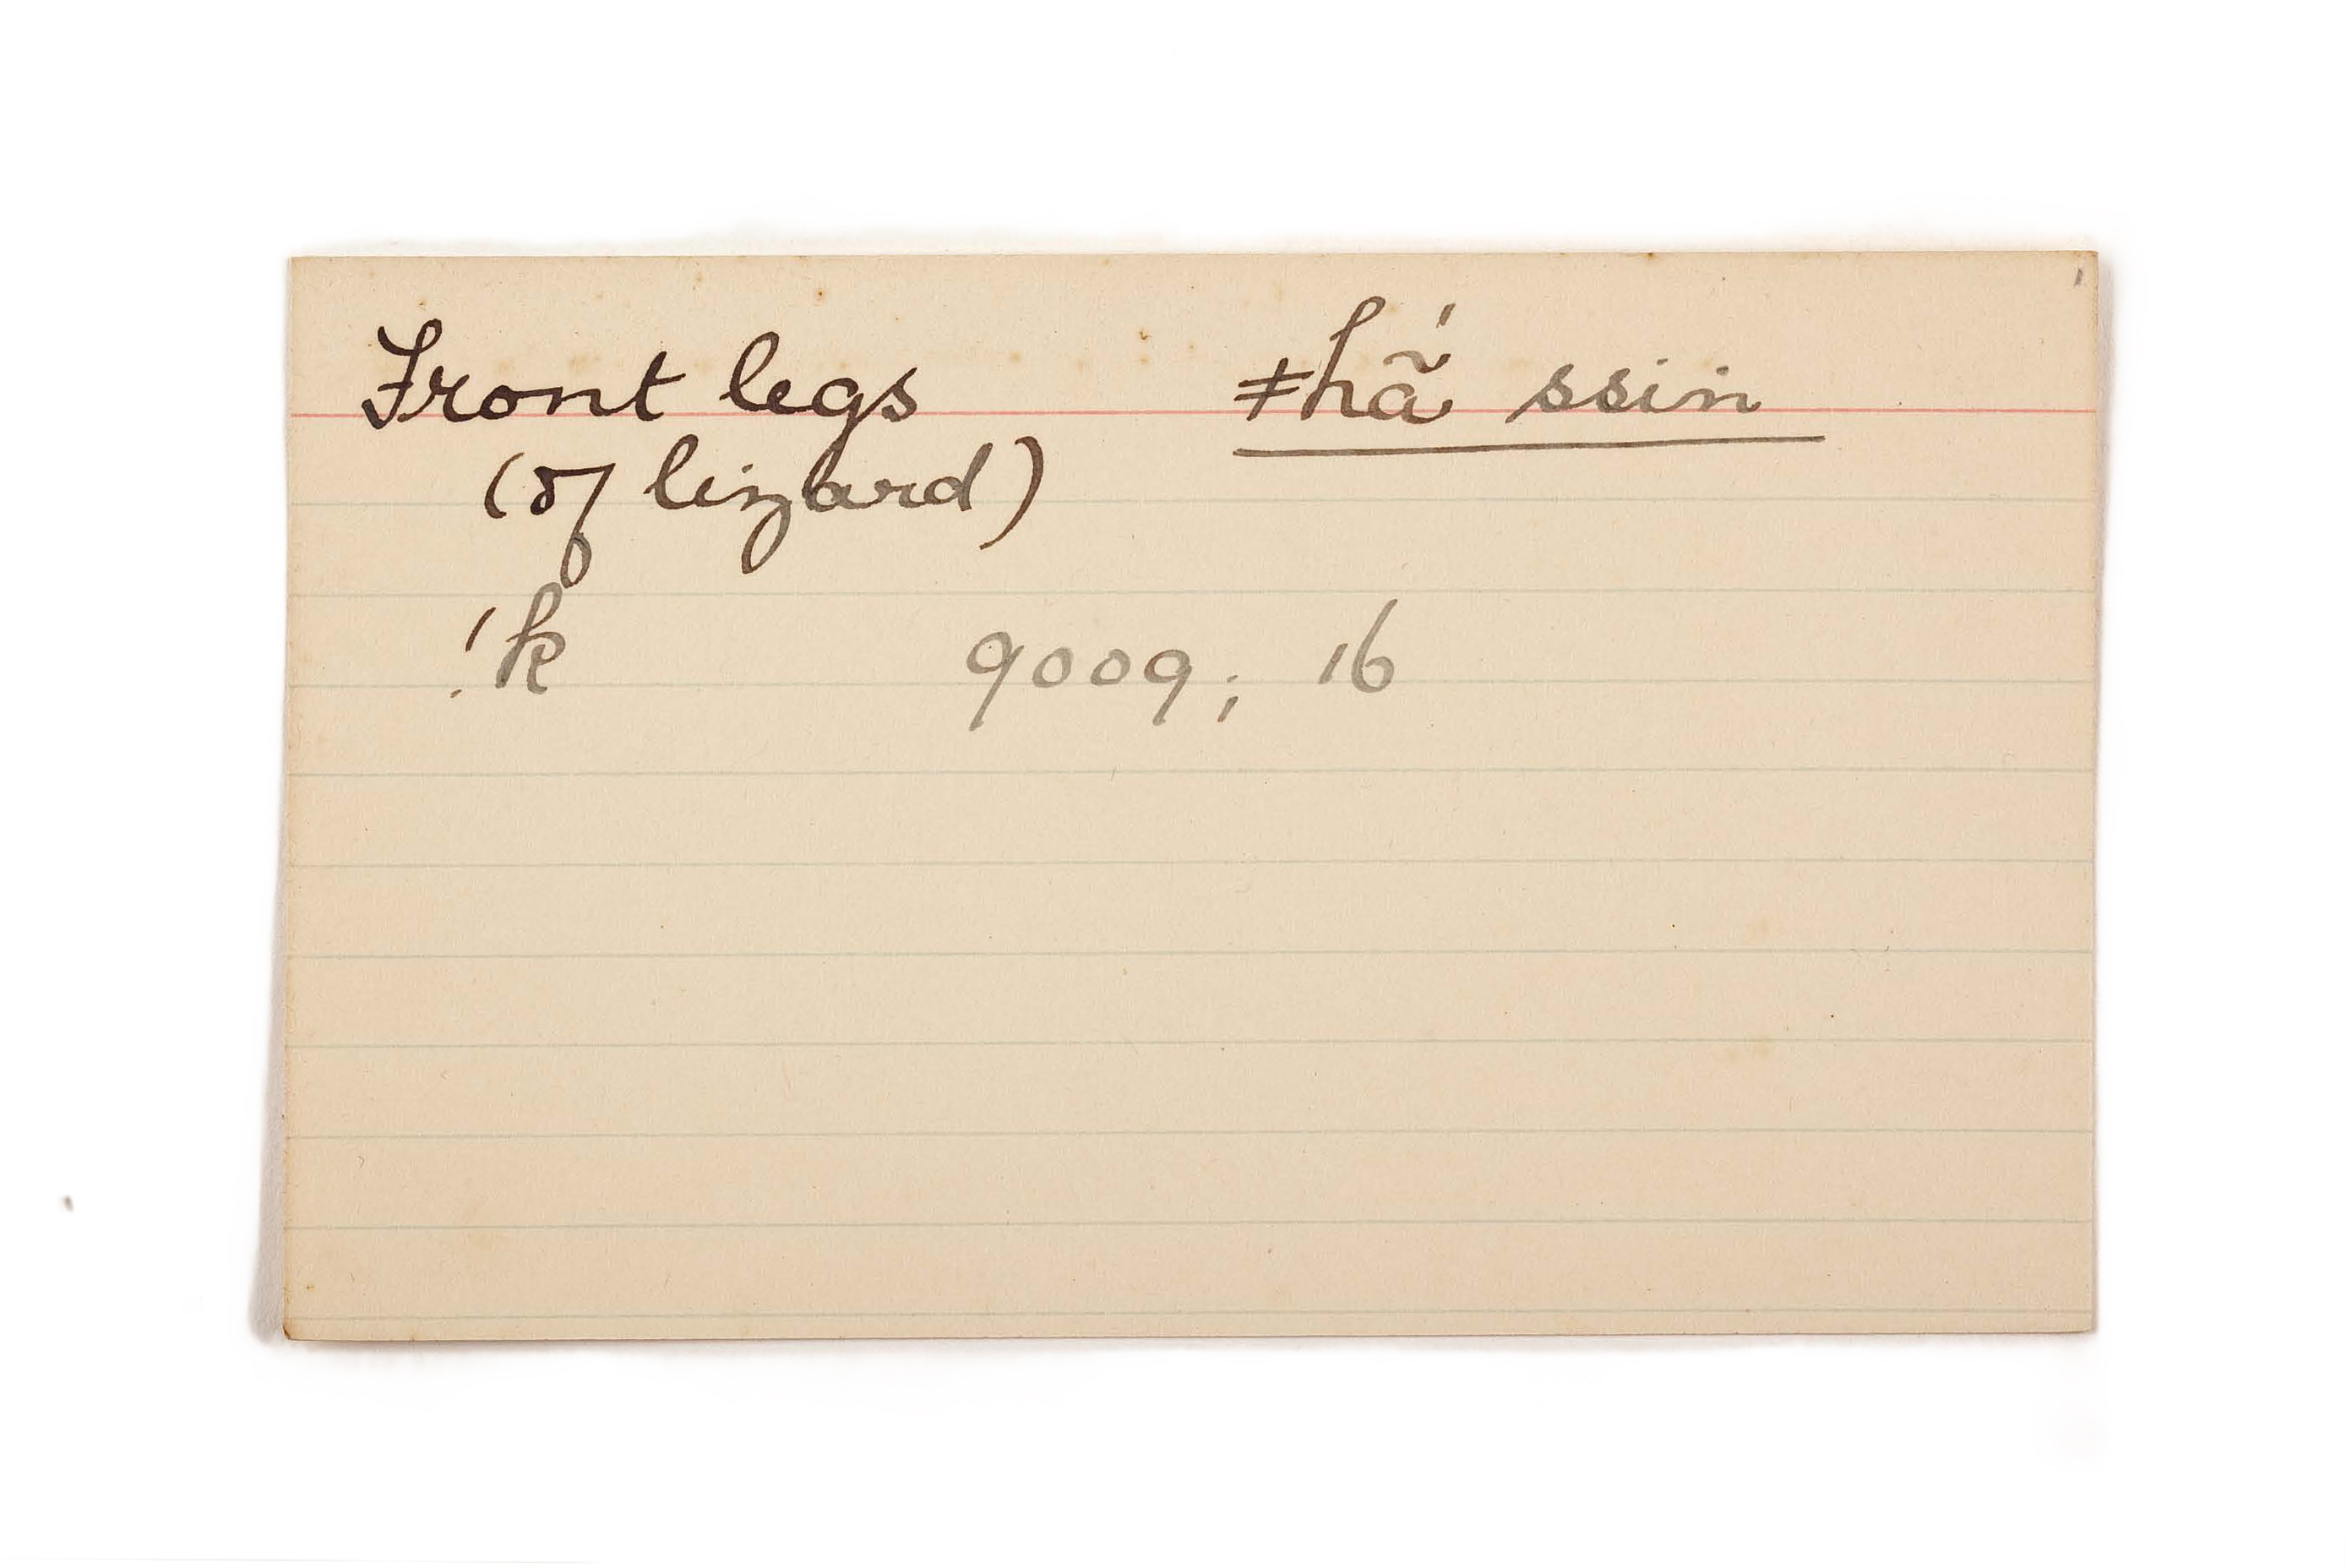 Front legs ǂhã́ ssin
(of lizard)
!k 9009; 16